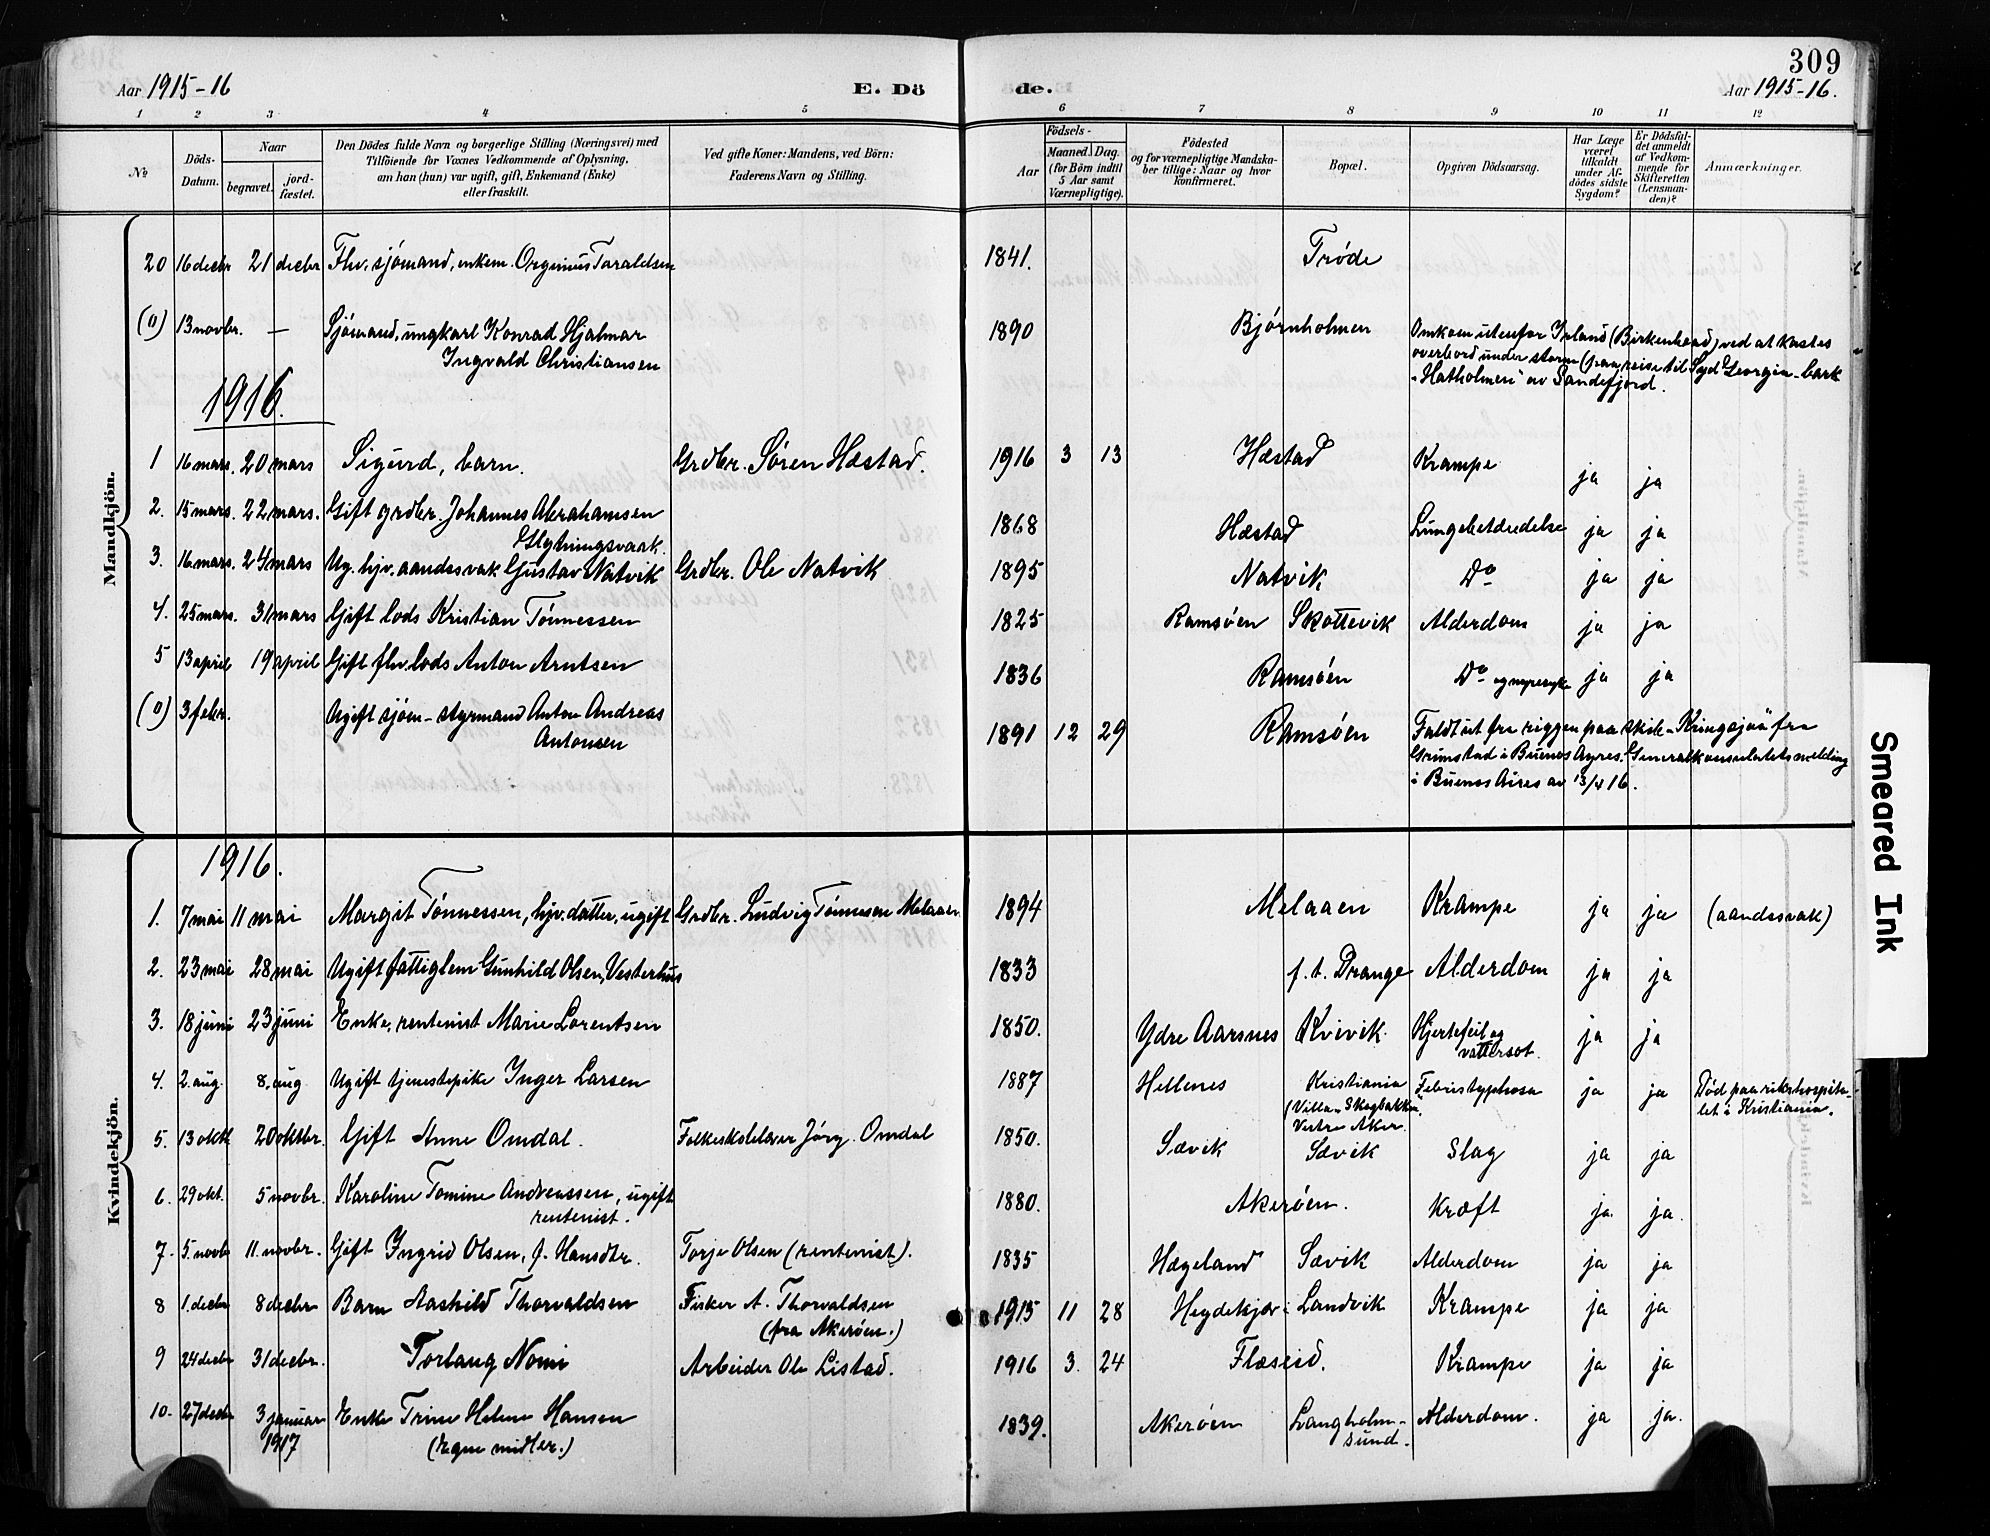 309
Aar 1915-16
E. Dö
de.
Aar 1915-16.
1 2 3 4 5 6 7 8 9 10 11 12
№
Döds-Datum.
Naar
begravet.
jord-fæstet.
Den Dödes fulde Navn og borgerlige Stilling (Næringsvei) med
Tilföiende for Voxnes Vedkommende af Oplysning,
om han (hun) var ugift, gift, Enkemand (Enke)
eller fraskilt.
Ved gifte Koner: Mandens, ved Börn:
Faderens Navn og Stilling.
Födsels-
Aar
Maaned. Dag.
(for Börn indtil
5 Aar samt
Værnepligtige).
Födested
og for værnepligtige Mandska-
ber tillige: Naar og hvor
konfirmeret.
Bopæl.
Opgiven Dödsaarsag.
Har Læge
været
tilkaldt
under Af-
dödes sidste
Sygdom?
Er Dödsfal-
det anmeldt
af Vedkom-
mende for
Skifteretten
(Lensman-
den)?
Anmærkninger.
Mandkjön.
20 16 decbr 21 decbr Fhv. sjömand, enkem. Orginius Taraldsen 1841. Trøde
(0) 13 novbr. — Sjömand, ungkarl Konrad Hjalmar
Ingvald Christiansen 1890 Bjørnholmen Omkom utenfor Irland (Birkenhead) ved at kastes
overbord under storm (paa reise til Syd Georgia - bark
"Hatholmen" av Sandefjord.
1916.
1 16 mars. 20 mars Sigurd, barn. Grdbr. Søren Hæstad. 1916 3 13 Hæstad Krampe ja ja
2. 15 mars. 22 mars. Gift grdbr. Johannes Abrahamsen
1868 Hæstad Lungebetændelse ja ja
3. 16 mars. 24 mars Ug. hjv. aandssvak Gustav Natvik Grdbr. Ole Natvik 1895 Natvik Do ja ja
4. 25 mars. 31 mars Gift lods Kristian Tönnessen 1825 Ramsøen Skottevik Alderdom ja ja
5 13 april 19 april Gift fhv. lods Anton Arntsen 1836 Ramsøen Do og nyresyke ja ja
(0) 3 febr. Ugift sjöm-styrmand Anton Andreas
Antonsen 1891 12 29 Ramsøen Faldt ut fra riggen paa skib "Kringsjaa" fra
Grimstad i Buenos Ayres. Generalkonsulatets melding
i Buenos Aires av 13/4 16.
Kvindekjön.
1916.
1. 7 mai 11 mai Margit Tönnessen, hjv. datter, ugift Grdbr. Ludvig Tönnesen Melaaen 1894 Melaaen Krampe ja ja (aandssvak)
2. 23 mai 28 mai Ugift fattiglem Gunhild Olsen, Vesterhus 1833 f. t. Drange Alderdom ja ja
3. 18 juni 23 juni Enke, rentenist Marie Lorentsen 1850. Ydre Aarsnes Kvivik Hjertefeil og
vattersot. ja ja
4. 2. aug. 8. aug Ugift tjenestepike Inger Larsen 1887 Hellenes Kristiania
(Villa "Skogbakken",
Vestre Aker. Febris typhosa ja ja Död paa rikshospita-
let i Kristiania.
5. 13 oktb 20 oktbr. Gift Anne Omdal. Folkeskolelærer Jörg. Omdal 1850. Sævik Sævik Slag ja ja
6. 29 okt. 5 novbr. Karoline Tomine Andreassen, ugift
rentenist. 1880. Akerøen. Kræft ja ja.
7. 5. novb 11. novbr. Gift Ingrid Olsen, f. Hansdtr. Torje Olsen (rentenist). 1835 Hægeland Sævik Alderdom ja ja
8 1. decbr 8 decbr Barn Aashild Thorvaldsen Fisker A. Thorvaldsen
(fra Akerøen.) 1915 11 28 Heydekjær i Landvik Krampe ja ja
9 24 decbr 31 decbr. Torlaug Nomi Arbeider Ole Listad. 1916 3. 24 Flæseid. Krampe ja ja
10. 27 decbr 3 januar
1917 Enke Trine Helene Hansen
(Egne midler.) 1839. Akerøen Langholm-
sund. Alderdom. ja ja.
Smeared Ink